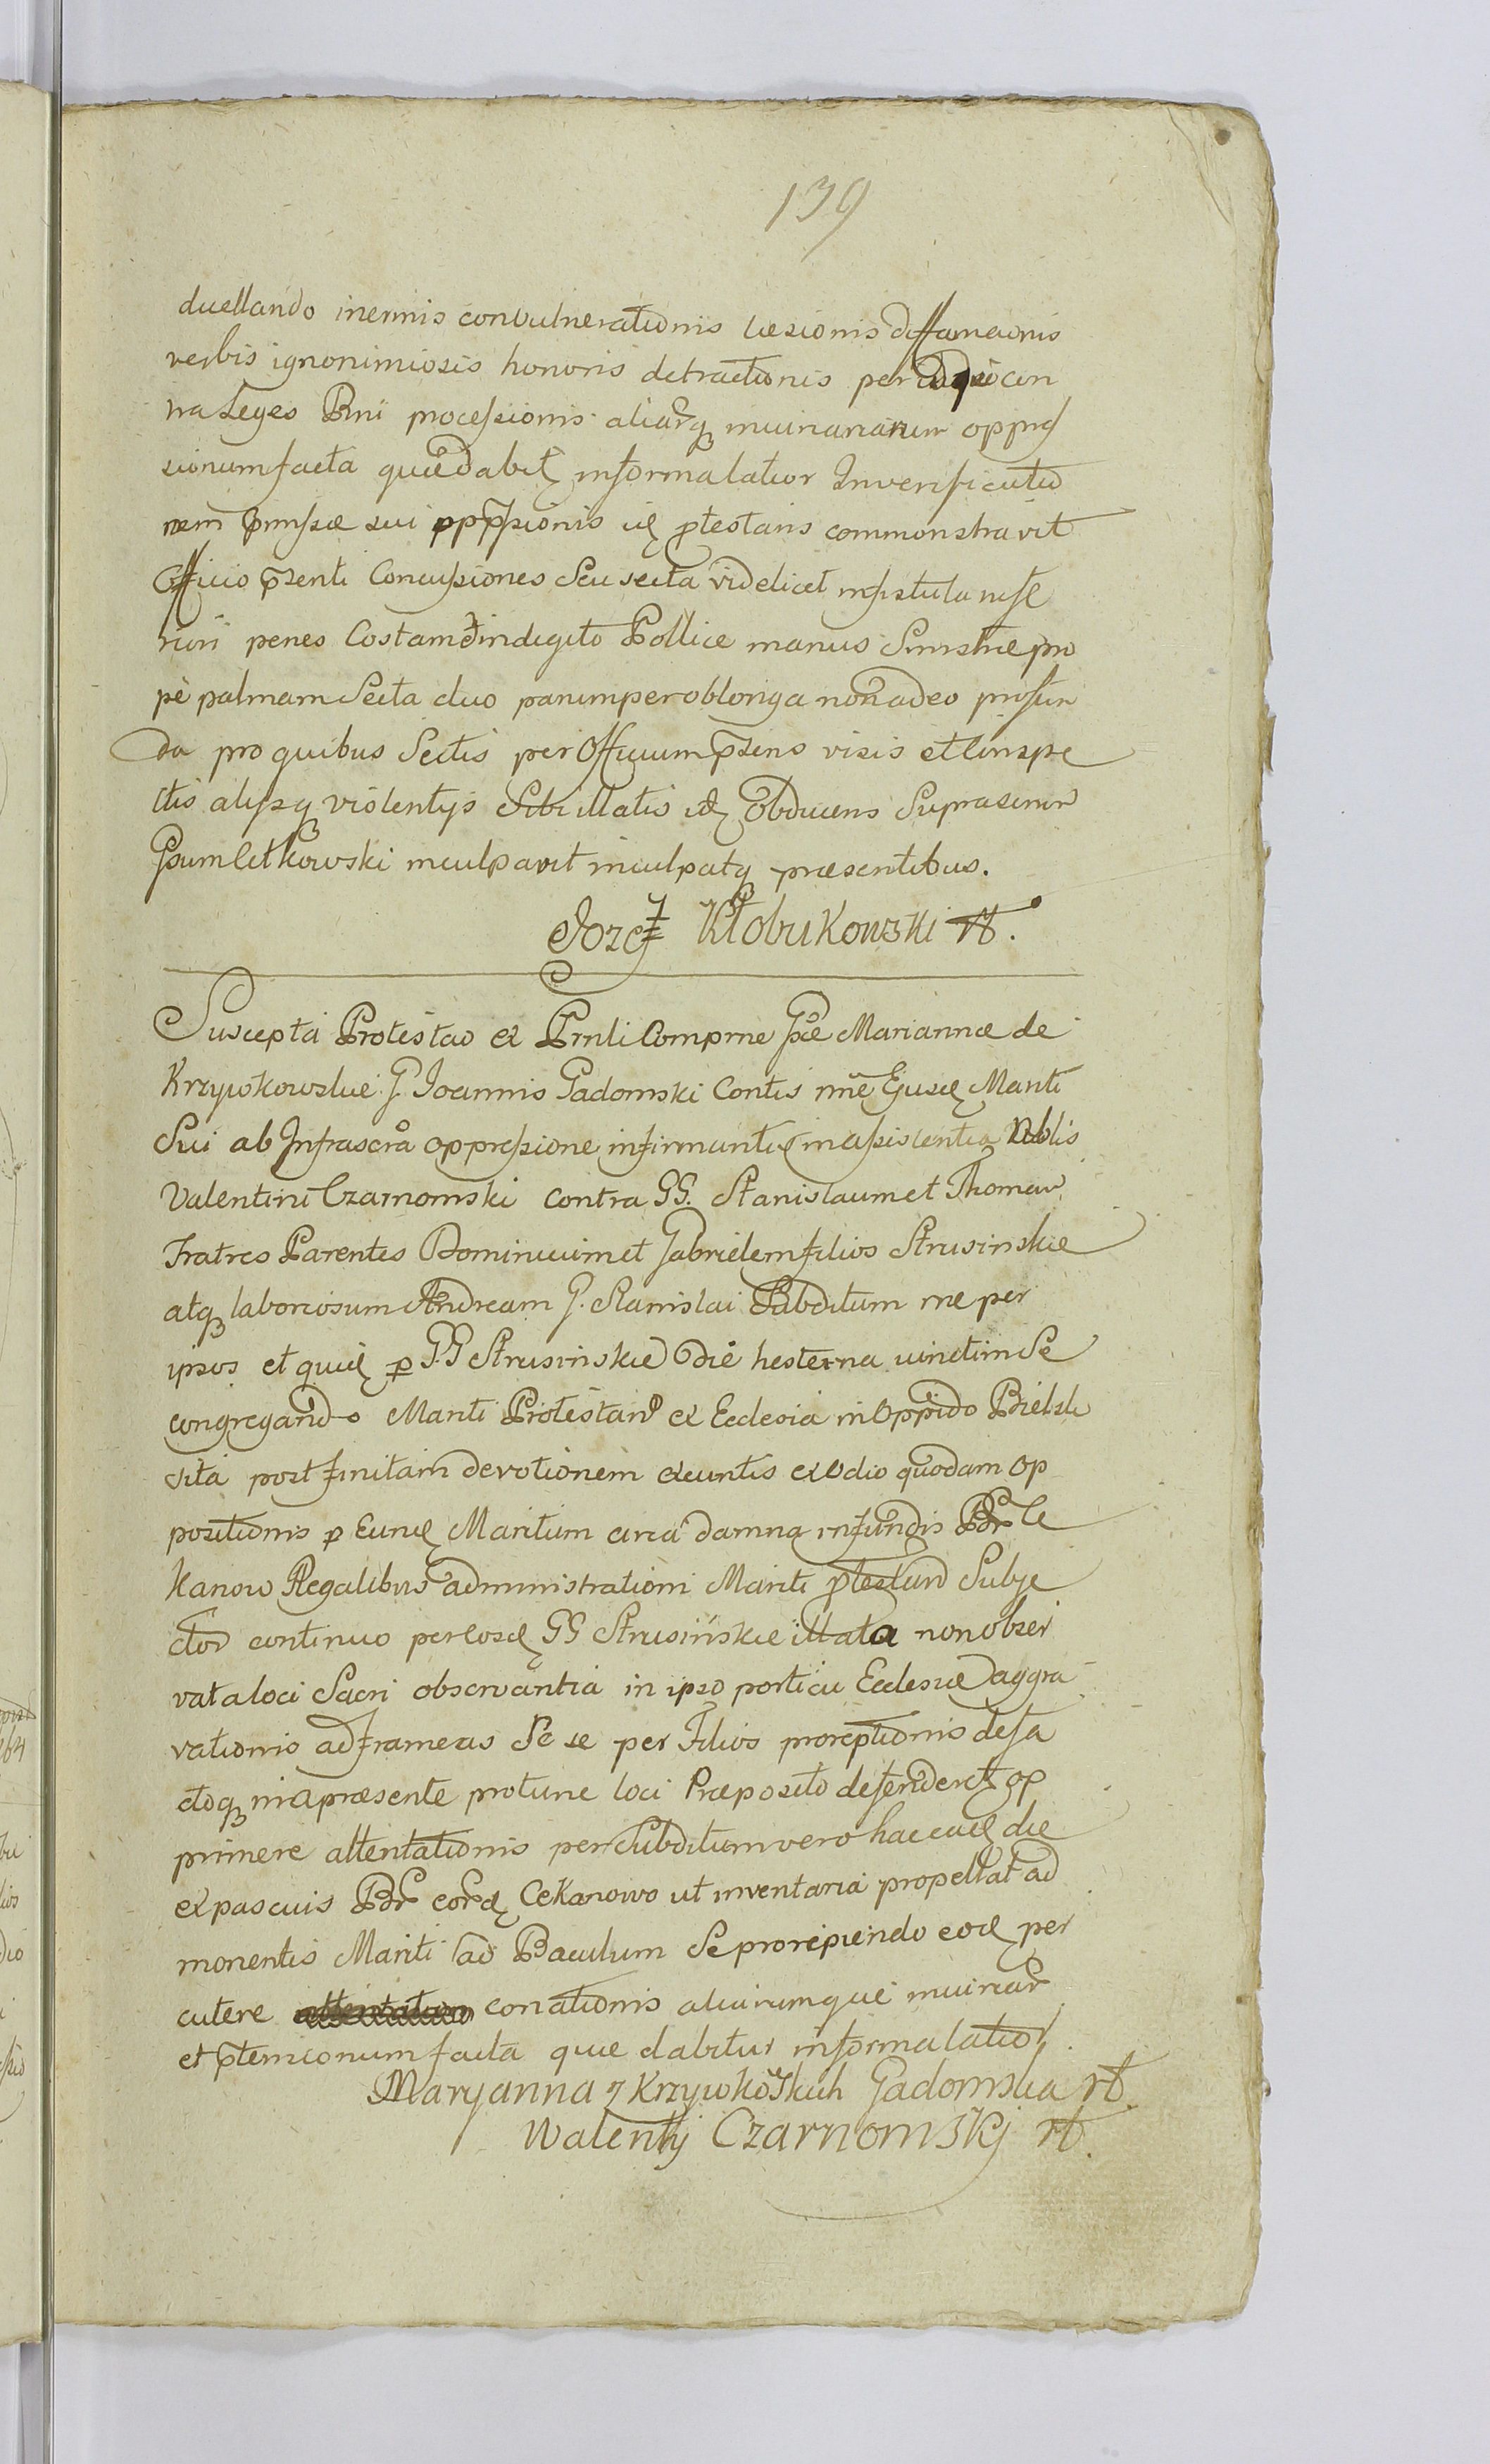 139
duellando inermis convulnerationis læsionis diffamaonis
verbis ignonimiosis honoris detractionis per con
tra Leges Rni processionis aliarq iniuriarum oppres
sionum facta quæ dabit informa latior In verificatio
nem pmissæ sui oppssionis id ptestans commonstravit
Officio psenti Concussiones Seu secta videlicet in fistula infe
riori penes Costam in digito Pollice manus Sinistræ pro
pè palmam Secta duo parumper oblonga non adeo profun
da pro quibus Sectis per Officium psens visis et Conspe
ctis alijsq violentijs Sibi illatis id obducens Suprascrm
Gsum Cetkowski inculpavit inculpatq præsentibus.
Jozef Kłobukowski rt.
Suscepta Protestao ex Prnli Comprne Gsæ Mariannæ de
Krzywkowskie G. Joannis Gadomski Contis nne Eiusd Mariti
Sui ab Infrascra oppressione infirmantis in assistentia Nblis
Valentini Czarnomski contra GG. Stanislaum et Thomam
Fratres Parentes Dominicum et Gabrielem filios Strusinskie
atq laboriosum Andream G. Stanislai Subditum ne per
ipsos et quid p GG Strusinskie die hesterna unctim Se
congregando Mariti Protestan ex Ecclesia in Oppido Bielsk
sita post finitam devotionem exeuntis ex odio quodam op
positionis p Eund Maritum circa damna in fundis Bonr Ce
kanow Regalibus administrationi Mariti ptestan Subje
ctor continuo per eosd GG Strusińskie illata non obser
vata loci Sacri observantia in ipso porticu Ecclesiæ aggra
vationis ad frameas Se se per Filios proreptionis de fa
ctoq ni a præsente protunc loci Præposito defenderet op
primere attentationis per Subditum vero hac ead die
ex pascuis Bonr eord Cekanowo ut inventaria propellat ad
monentis Mariti ad Baculum Se proripiendo eod per
cutere conationis aliarumque iniuriar
et ptensionum facta quæ dabitur informa latior
Maryanna z Krzywkoskich Gadomska rt.
Walenty Czarnomski rt.